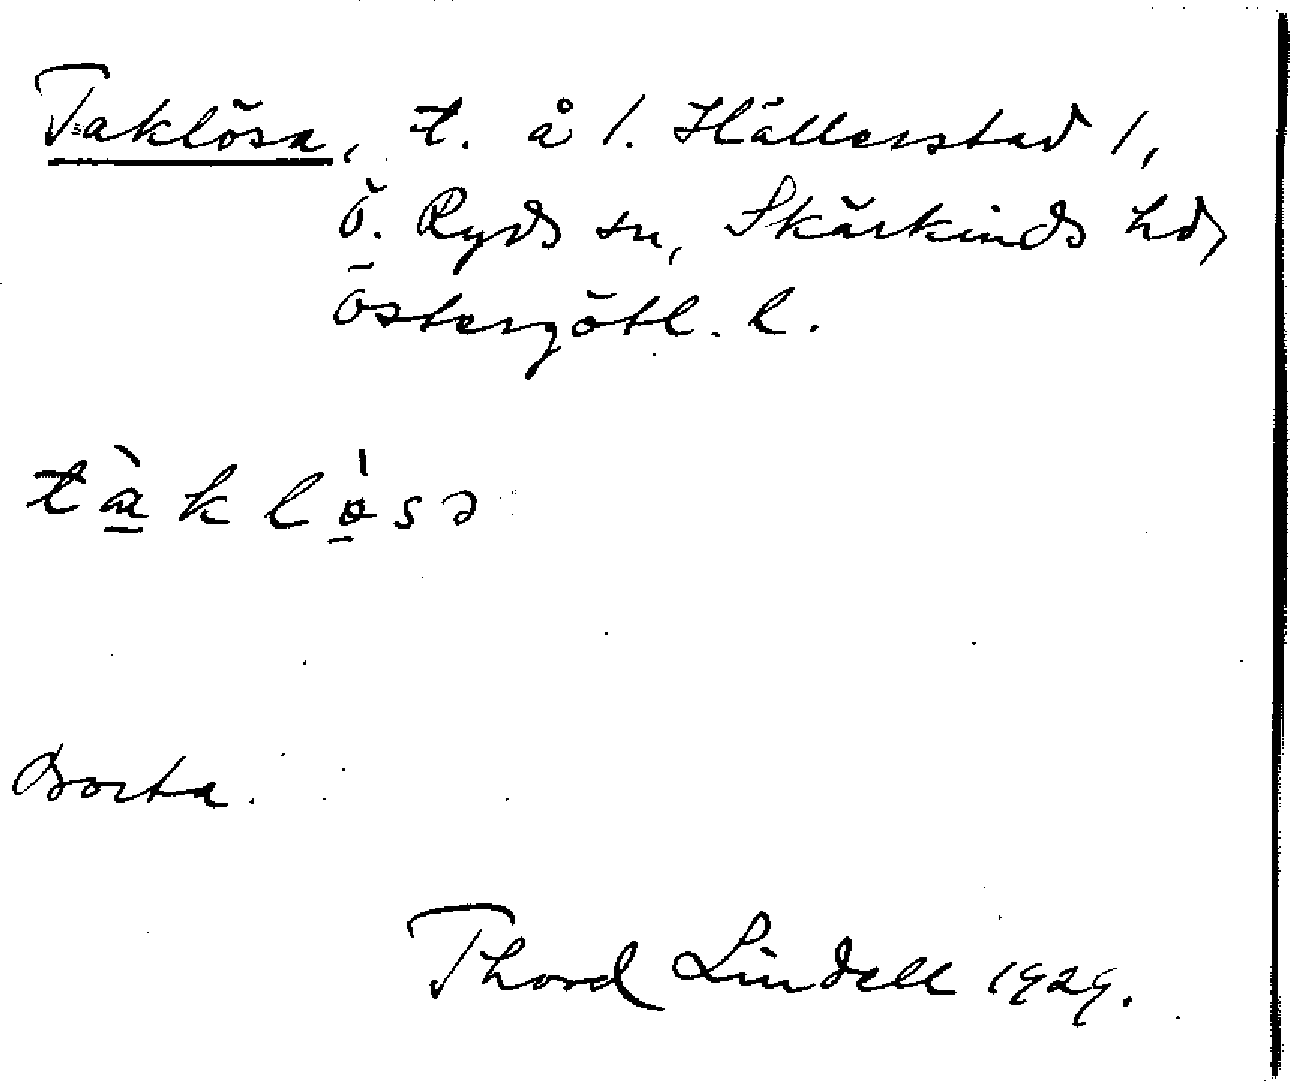 Taklösa, t. å 1. Hällerstad 1,
Ö. Ryds sn, Skärkinds hd,
Östergötl. l.
tàklø̀sə
Borta.
Thord Lindell 1929.